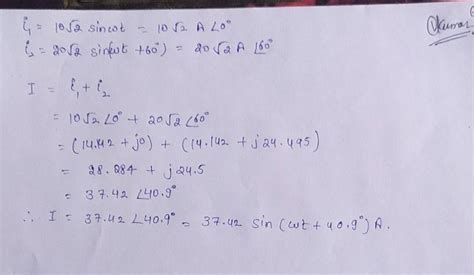 i₁ = 10√2 sinωt = 10√2 A ∠0°
i₂ = 20√2 sin(ωt + 60°) = 20√2 A ∠60°
Kumar
I = i₁ + i₂
= 10√2 ∠0° + 20√2 ∠60°
= (14.142 + j0) + (14.142 + j24.495)
= 28.284 + j24.5
= 37.42 ∠40.9°
∴ I = 37.42 ∠40.9° = 37.42 sin(ωt + 40.9°) A.